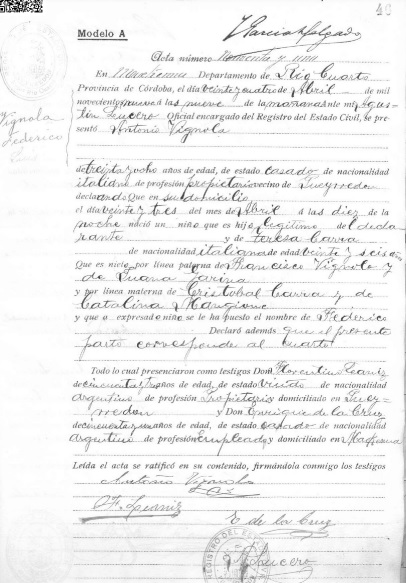 49
Modelo A
Acta número Noventa y una
En Mackenna Departamento de Rio Cuarto
Provincia de Córdoba, el dia veinte y cuatro de Abril de mil
novecientos nueve á las nueve de la mañana ante mi Agus-
tin Lucero Oficial encargado del Registro del Estado Civil, se pre-
sentó Antonio Vignola
Vignola
Federico
de treinta y ocho años de edad, de estado casado de nacionalidad
italiana de profesión propietario vecino de
declarando Que en su domicilio
el dia veinte y tres del mes de Abril á las diez de la
noche nació un niño que es hijo legitimo del decla
rante y de Teresa Carra
de nacionalidad italiana de edad veinte y seis años
Que es nieto por linea paterna de Francisco Vignola y
de Juana Farina
y por linea materna de Cristobal Carra y de
Catalina Mangiono
y que a expresado niño se le ha puesto el nombre de Federico
Declaró además que el presente
parto corresponde al cuarto
Todo lo cual presenciaron como testigos Don Florentino
de cincuenta y años de edad, de estado viudo de nacionalidad
argentino de profesión Propietario y domiciliado en
y Don Enrique de la Cruz
de cincuenta y años de edad, de estado casado de nacionalidad
argentino de profesión empleado y domiciliado en Mackenna
Leída el acta se ratificó en su contenido, firmándola conmigo los testigos
Antonio Vignola
E de la Cruz
A Lucero
REGISTRO DEL